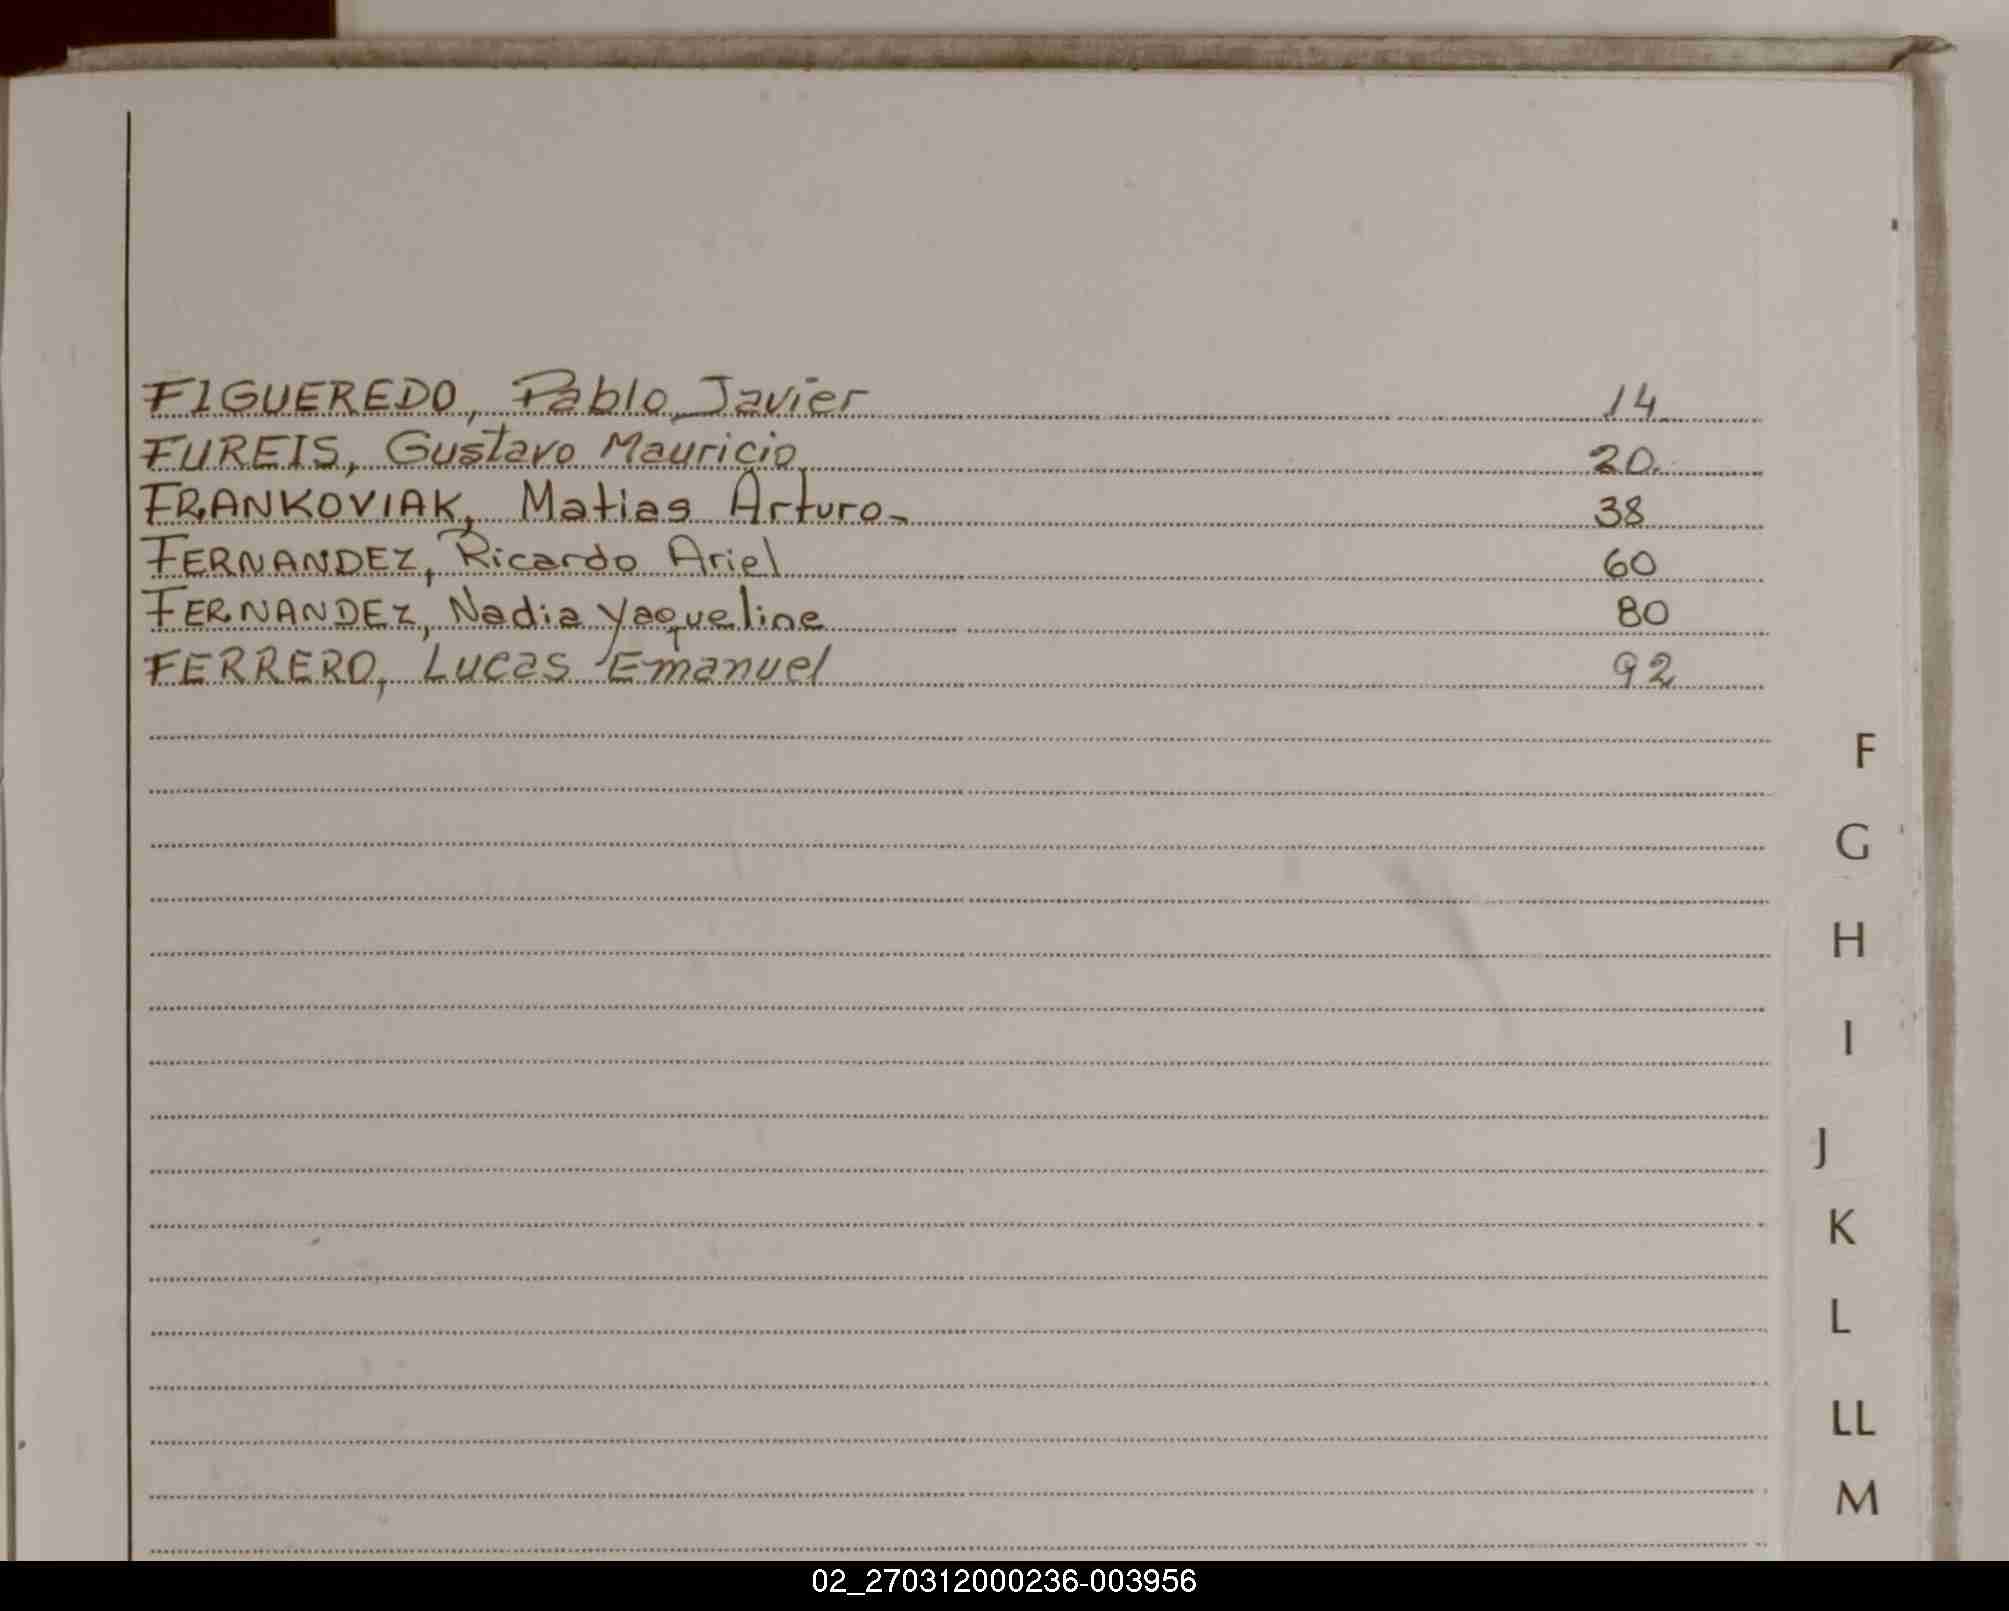 FIGUEREDO, Pablo Javier 14
FUREIS, Gustavo Mauricio 20.
FRANKOVIAK, Matias Arturo- 38
FERNANDEZ, Ricardo Ariel 60
FERNANDEZ, Nadia Yaqueline 80
FERRERO, Lucas Emanuel 92
F
G
H
I
J
K
L
LL
M
02_270312000236-003956